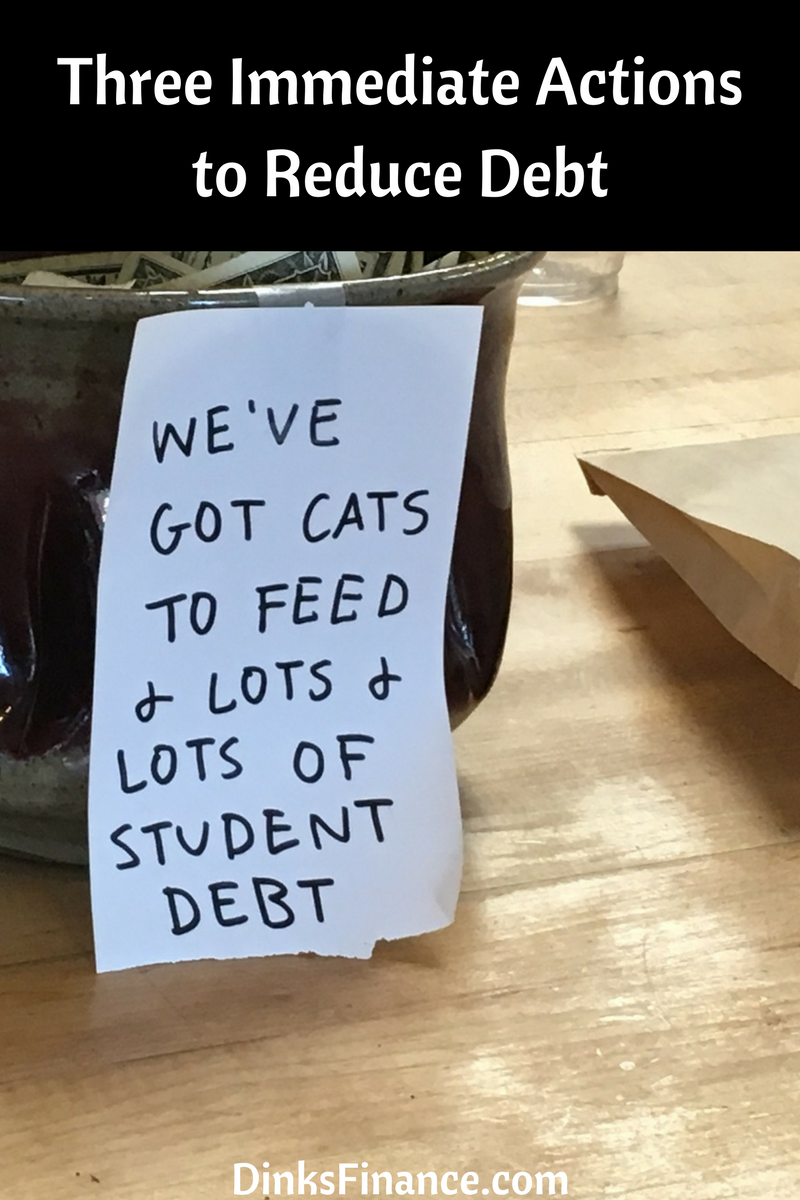 Three Immediate Actions
to Reduce Debt
WE'VE
GOT CATS
TO FEED
& LOTS &
LOTS OF
STUDENT
DEBT
DinksFinance.com